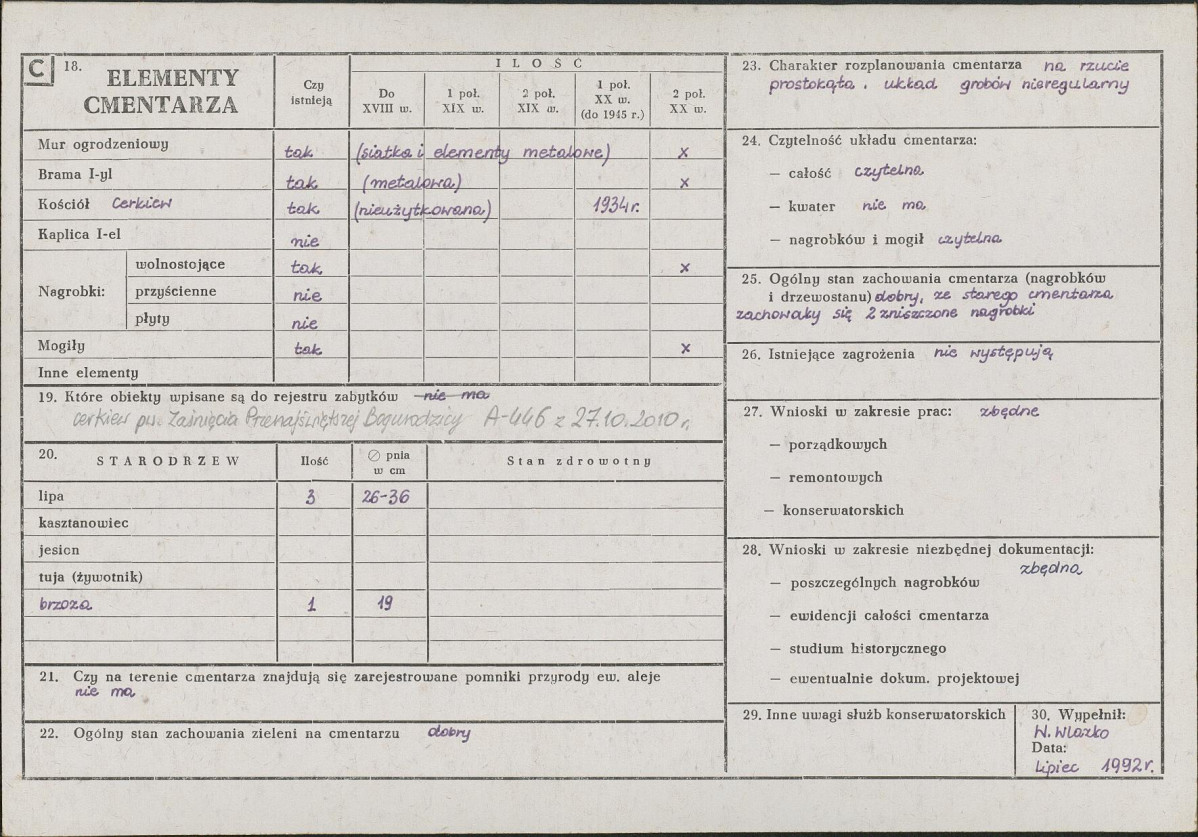 C 18. ELEMENTY CMENTARZA
Czy istnieją
I L O S C
Do XVIII w.
1 poł. XIX w.
2 poł. XIX w.
1 poł. XX w. (do 1945 r.)
2 poł. XX w.
Mur ogrodzeniowy tak (siatka i elementy metalowe) x
Brama I-yl tak (metalowa) x
Kościół Cerkiew tak (nieużytkowana) 1934r.
Kaplica I-el nie
Nagrobki: wolnostojące tak x
przyścienne nie
płyty nie
Mogiły tak x
Inne elementy
19. Które obiekty wpisane są do rejestru zabytków nie ma
cerkiew pw. Zaśnięcia Przenajświętszej Bogurodzicy A-446 z 27.10.2010 r.
20. STARODRZEW Ilość ∅ pnia w cm Stan zdrowotny
lipa 3 26-36
kasztanowiec
jesion
tuja (żywotnik)
brzoza 1 19
21. Czy na terenie cmentarza znajdują się zarejestrowane pomniki przyrody ew. aleje
nie ma
22. Ogólny stan zachowania zieleni na cmentarzu dobry
23. Charakter rozplanowania cmentarza na rzucie
prostokąta, układ grobów nieregularny
24. Czytelność układu cmentarza:
— całość czytelna
— kwater nie ma
— nagrobków i mogił czytelna
25. Ogólny stan zachowania cmentarza (nagrobków
i drzewostanu) dobry, ze starego cmentarza
zachowały się 2 zniszczone nagrobki
26. Istniejące zagrożenia nie występują
27. Wnioski w zakresie prac: zbędne
— porządkowych
— remontowych
— konserwatorskich
28. Wnioski w zakresie niezbędnej dokumentacji:
zbędna
— poszczególnych nagrobków
— ewidencji całości cmentarza
— studium historycznego
— ewentualnie dokum. projektowej
29. Inne uwagi służb konserwatorskich
30. Wypełnił:
W. Wlazko
Data:
Lipiec 1992r.